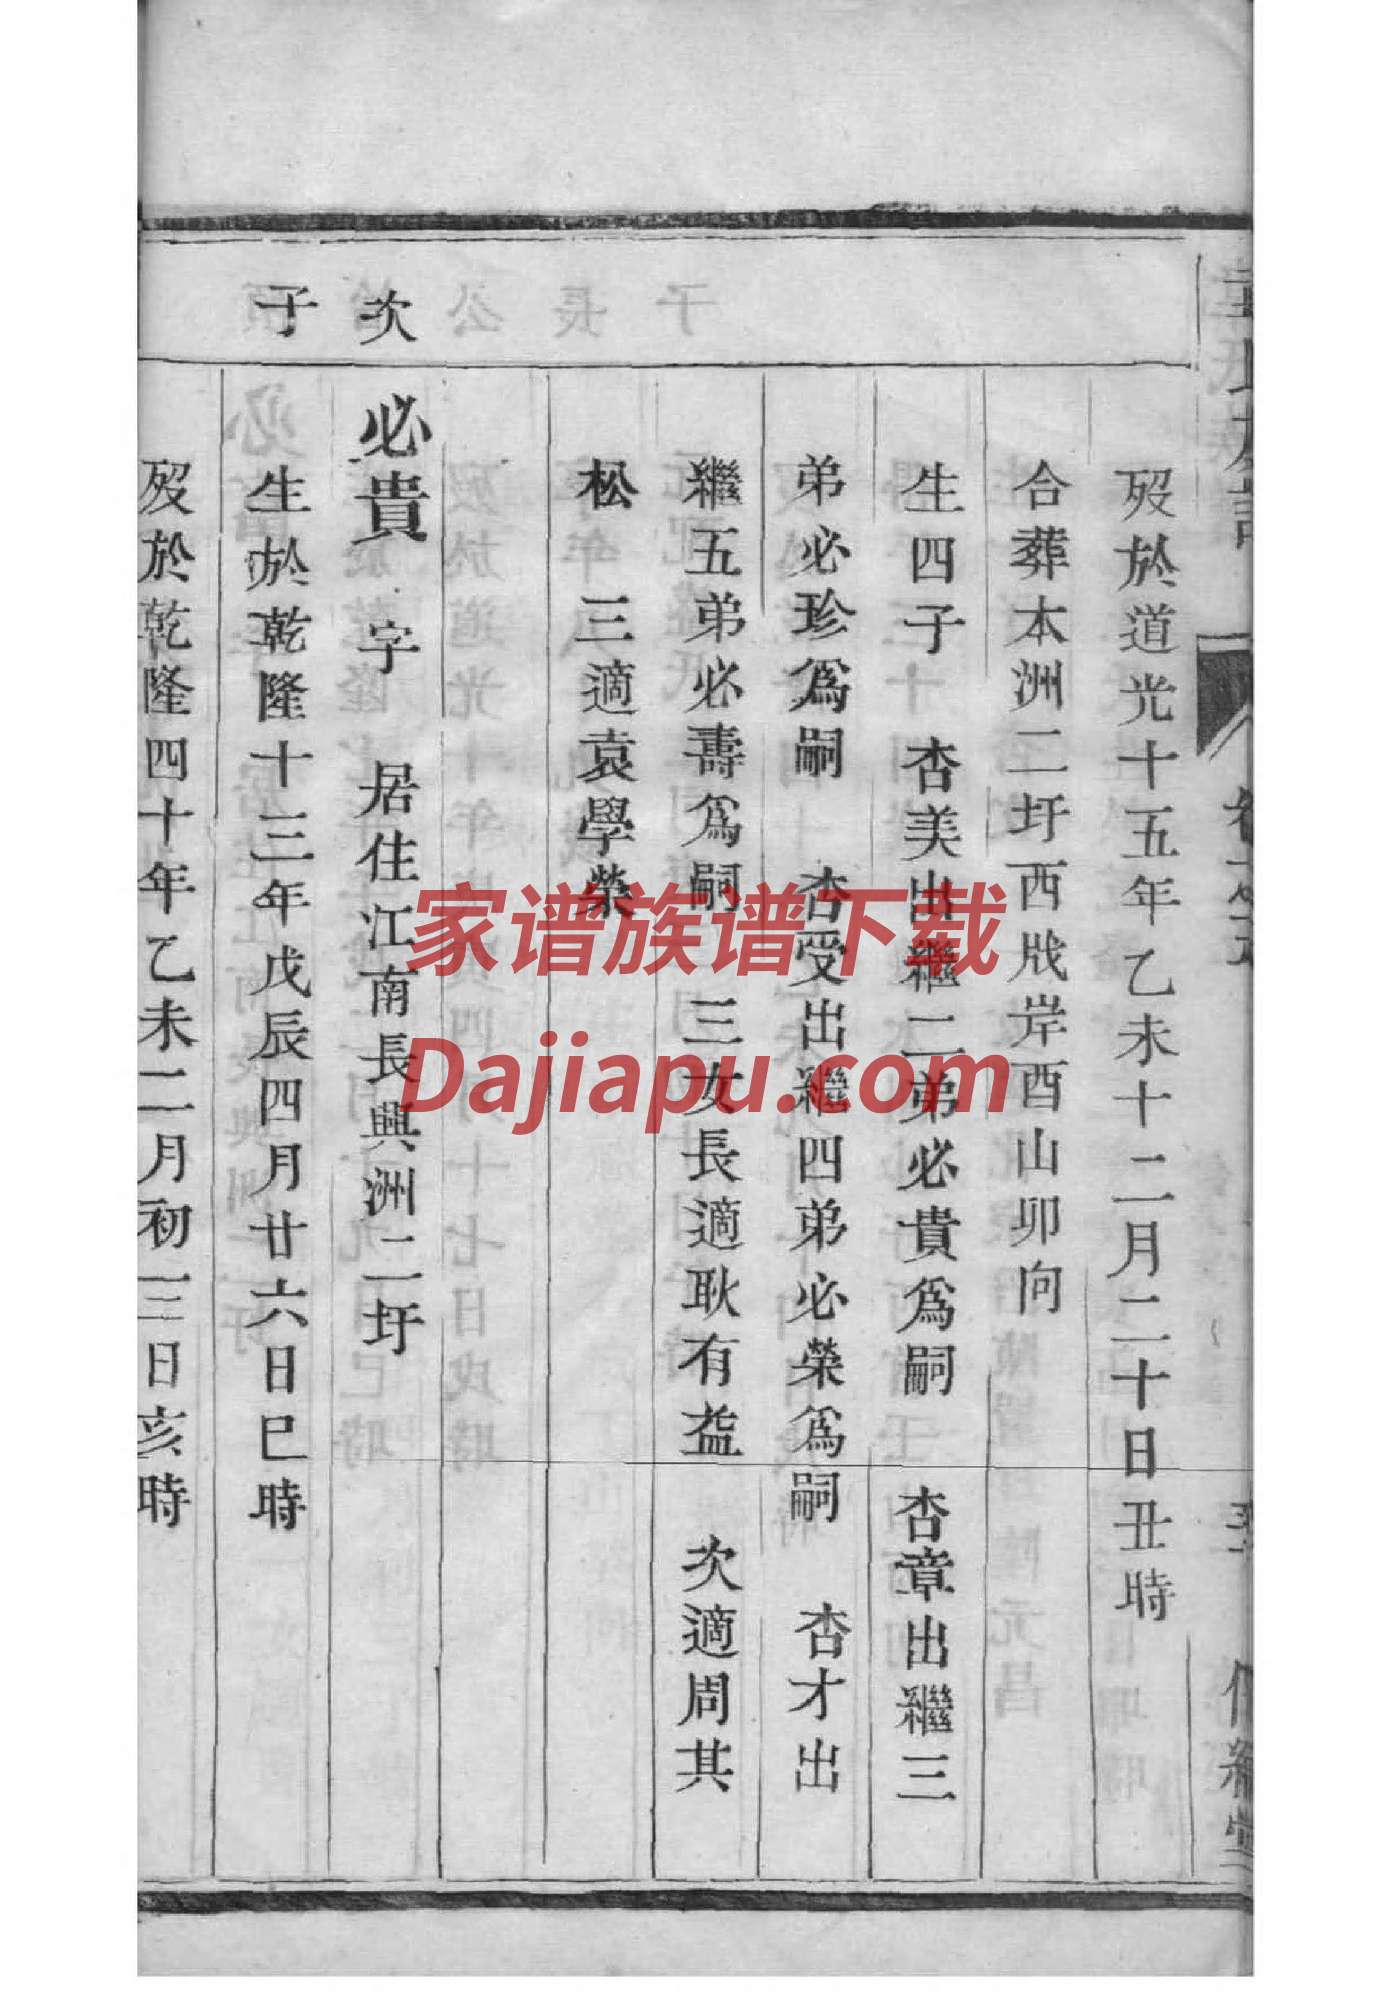 歿於道光十五年乙未十二月二十日丑時
合葬本洲二圩西戕岸酉山卯向
生四子　杏美出繼二弟必貴爲嗣　杏章出繼三
弟必珍爲嗣　杏受出繼四弟必榮爲嗣　杏才出
繼五弟必壽爲嗣　三女長適耿有益　次適周其
松　三適袁學榮
次子
必貴　字　居住江南長興洲二圩
生於乾隆十三年戊辰四月廿六日巳時
歿於乾隆四十年乙未二月初三日亥時
家谱族谱下载
Dajiapu.com